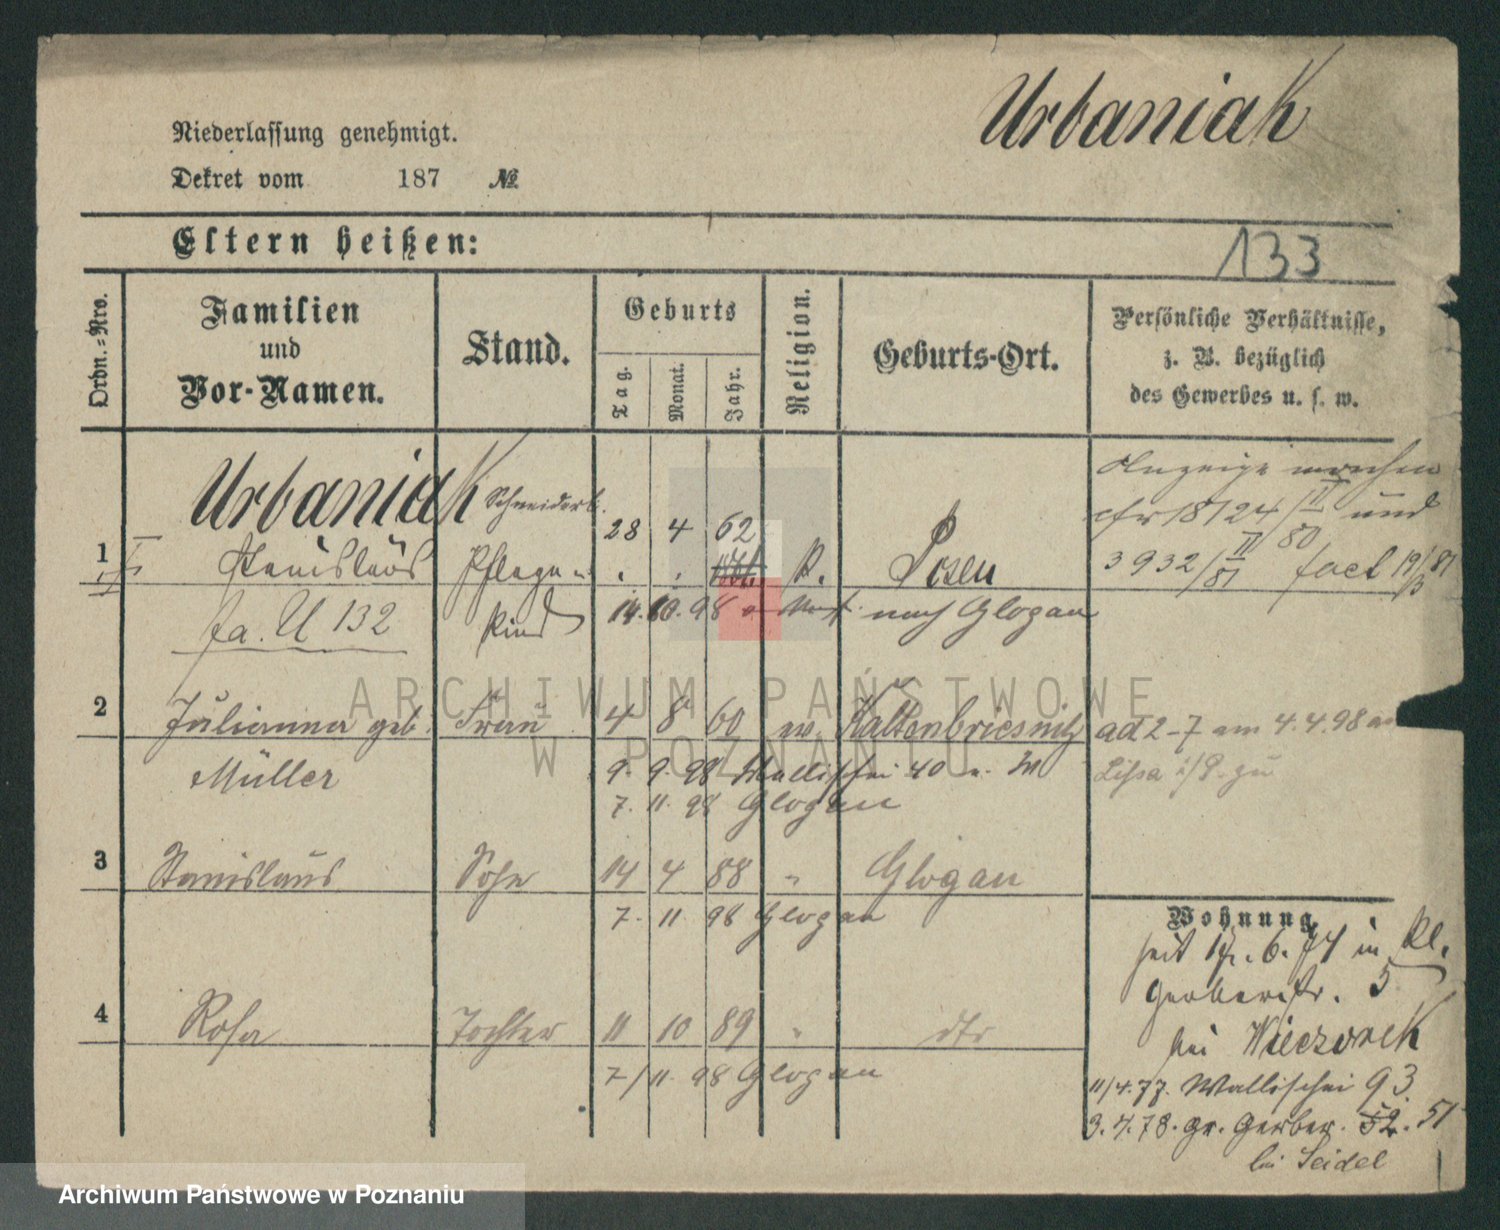 Urbaniak
Niederlassung genehmigt.
Dekret vom 187 №
Eltern heißen:
133
Ordn.-Nro.
Familien
und
Vor-Namen.
Stand.
Geburts
Tag.
Monat.
Jahr.
Religion.
Geburts-Ort.
Persönliche Verhältnisse,
z. B. bezüglich
des Gewerbes u. s. w.
Urbaniak
1 Stanislaus
fa. U 132
Pflege-
kind
28 4 62
K.
Posen
14. 10. 98 nach Glogau
Anzeige machen
cfr 18124/II 80 und
3932/II 81 fact 19/3 81
2 Julianna geb. Frau 4 8 60 ev. Kaltenbriesnitz
Müller
9. 9. 98 Wallischei 40
7. 11. 98 Glogau
ad 2-7 am 4.4.98
Lissa i/P. zu
3 Stanislaus Sohn 14 4 88 " Glogau
7. 11 98 Glogau
4 Rosa Tochter 11 10 89 " dto
7/11. 98 Glogau
Wohnung
seit 6. 74 in kl.
Gerberstr. 5
bei Wieczorek
11/4.77. Wallischei 93
3. 4. 78. gr. Gerber. 51
bei Seidel
ARCHIWUM PAŃSTWOWE
W POZNANIU
Archiwum Państwowe w Poznaniu